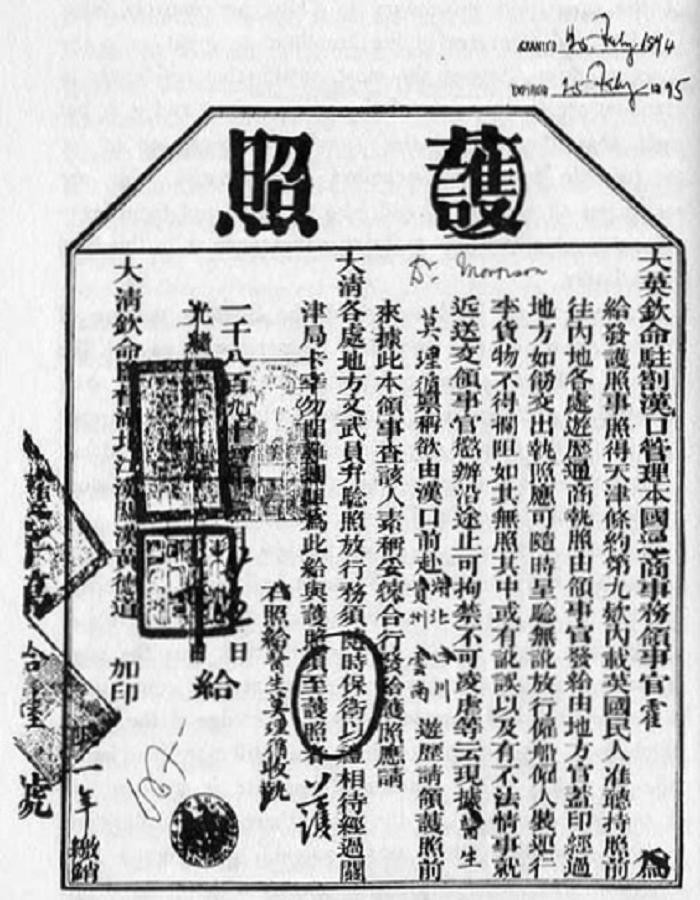 GRANTED 25 July 1894
EXPIRING 25 July 1895
護照
Dr Morrison
大英欽命駐劄漢口管理本國通商事務領事官霍 為
給發護照事照得天津條約第九款內載英國民人准聽持照前
往內地各處遊歷通商執照由領事官發給由地方官蓋印經過
地方如飭交出執照應可隨時呈驗無訛放行僱船僱人裝運行
李貨物不得攔阻如其無照其中或有訛誤以及有不法情事就
近送交領事官懲辦沿途止可拘禁不可凌虐等云現據醫生
莫理循稟稱欲由漢口前赴湖北四川貴州雲南遊歷請領護照前
來據此本領事查該人素稱妥練合行發給護照應請
大清各處地方文武員弁驗照放行務須隨時保衛以禮相待經過關
津局卡幸勿留難攔阻為此給與護照須至護照者
右照給醫生莫理循收執
一千八百九十四年 日
光緒 日給
大清欽命 江漢關 漢黃德道 加印
限一年繳銷